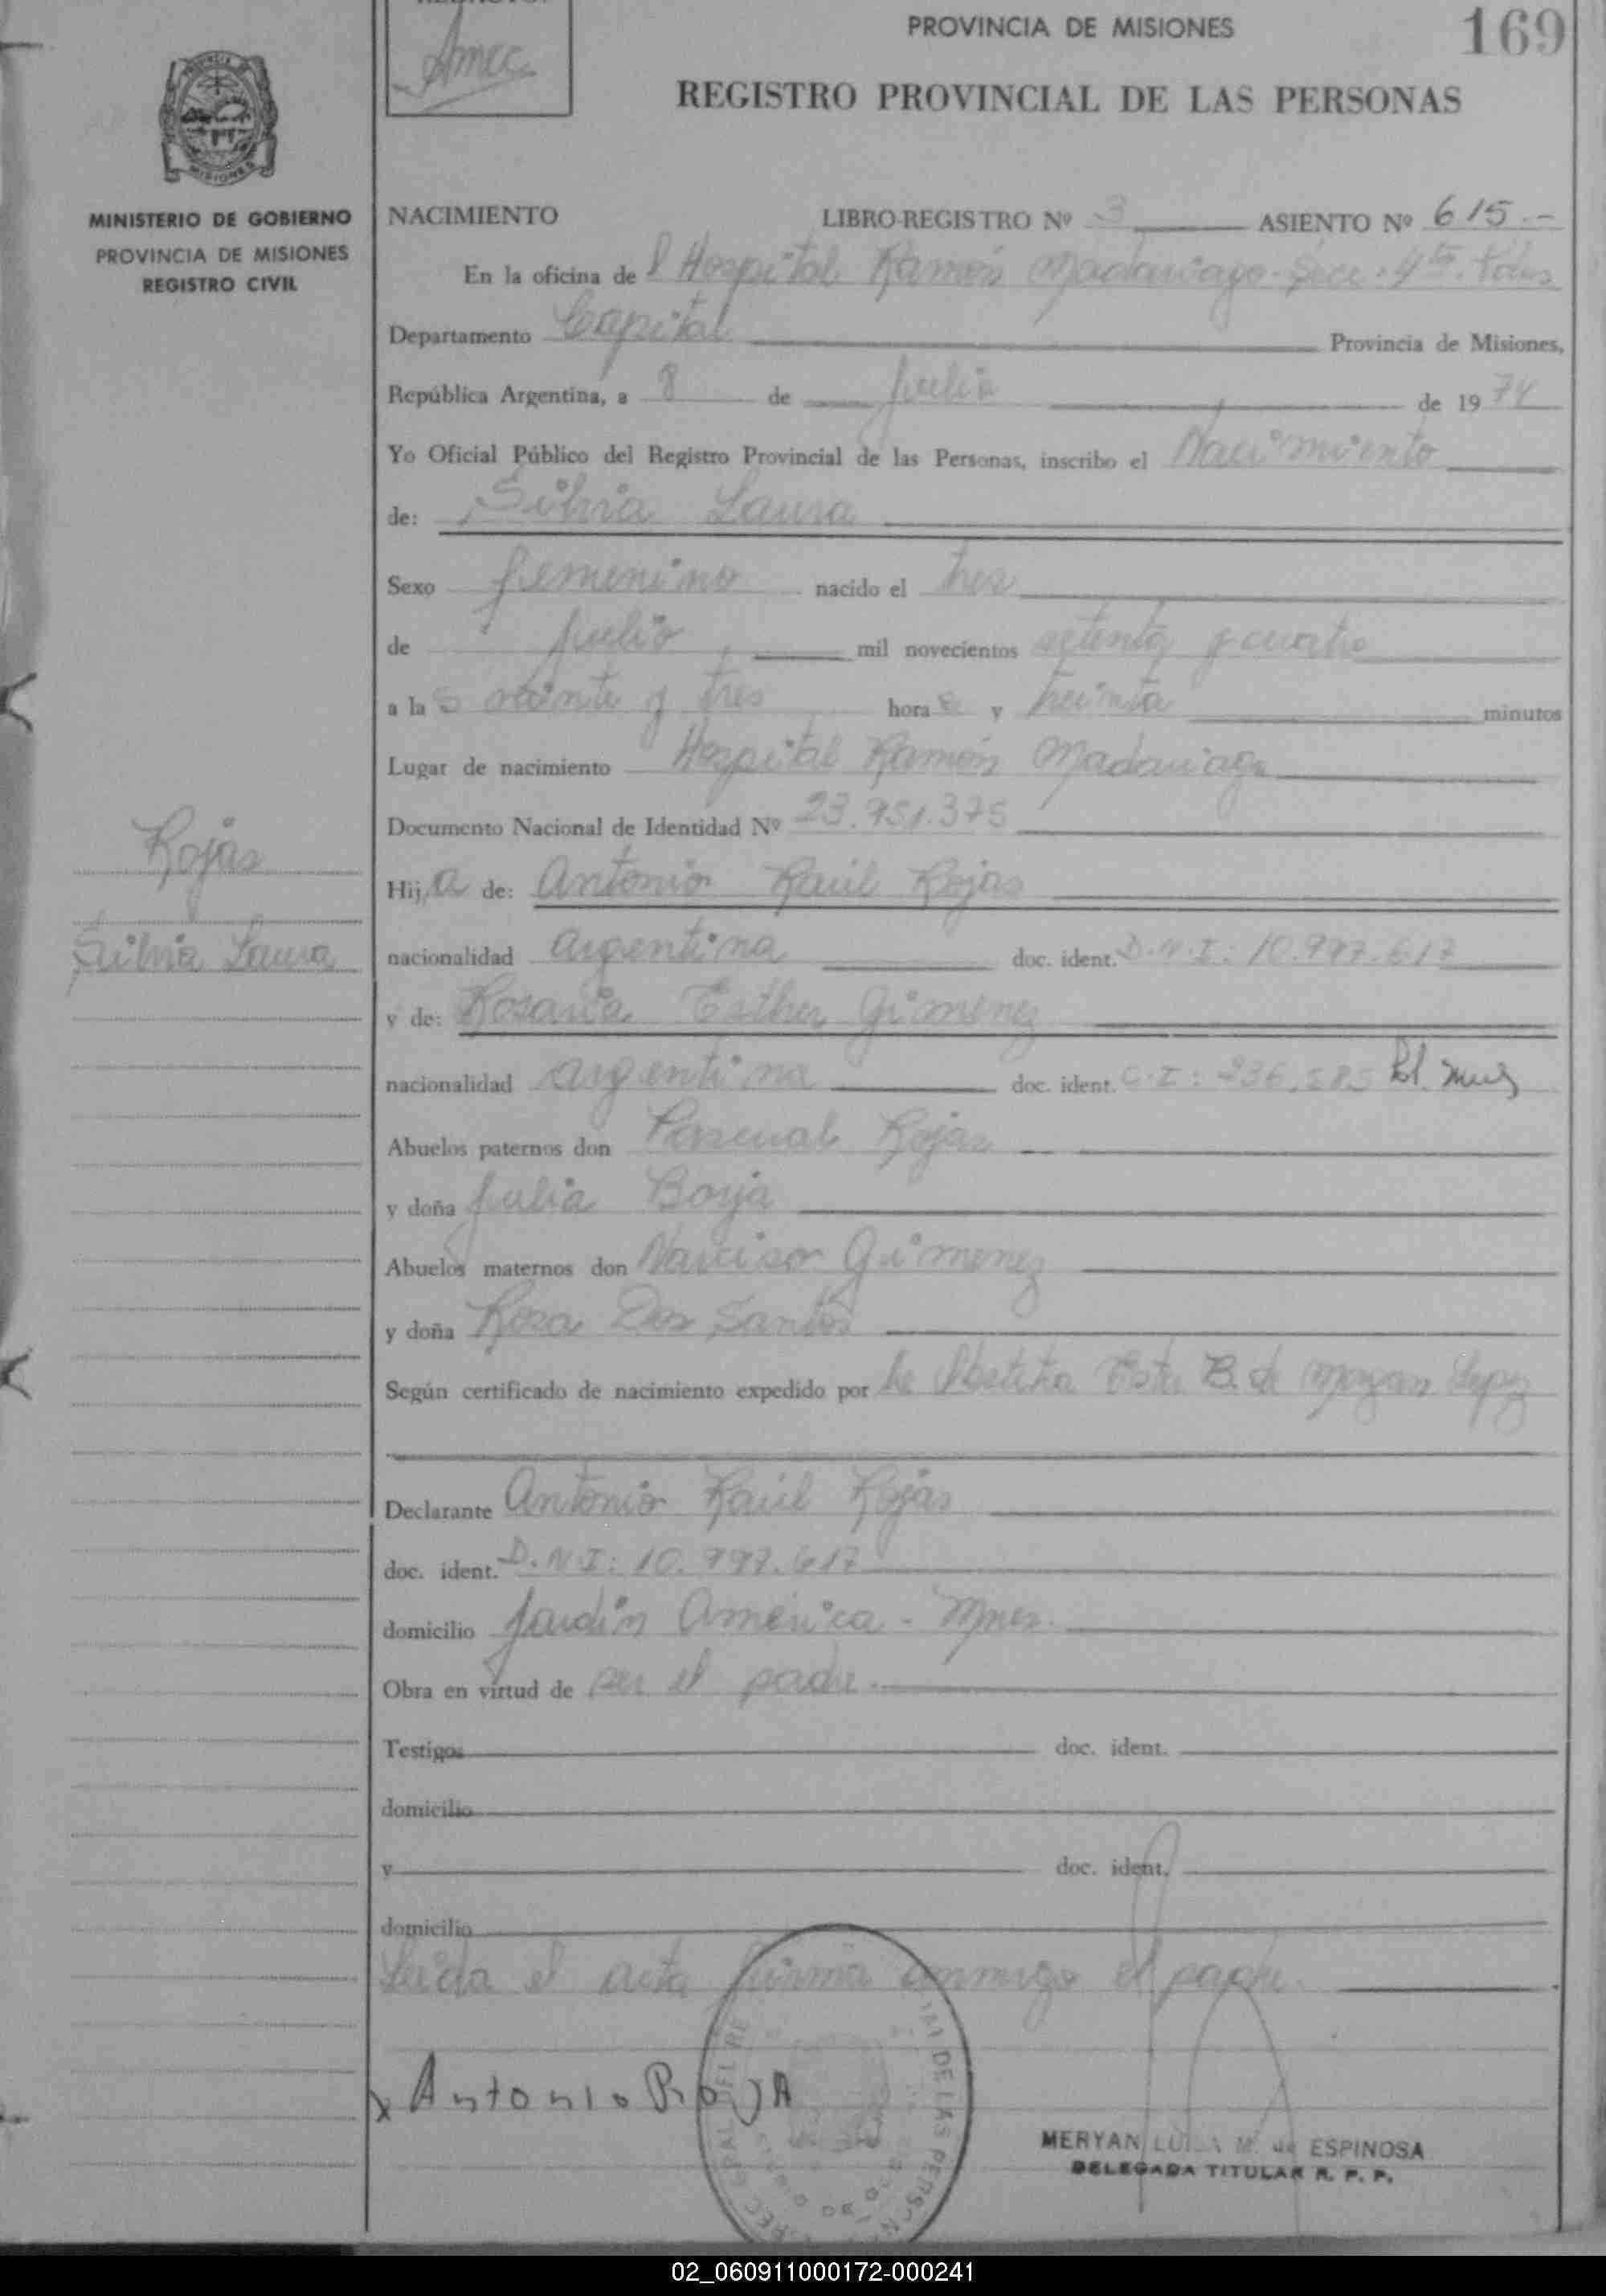 169
PROVINCIA DE MISIONES
REGISTRO PROVINCIAL DE LAS PERSONAS
MISIONES
MINISTERIO DE GOBIERNO
PROVINCIA DE MISIONES
REGISTRO CIVIL
NACIMIENTO LIBRO-REGISTRO Nº 3 ASIENTO Nº 615.-
En la oficina de l Hospital Ramón Madariaga - Secc. 4ta.
Departamento Capital Provincia de Misiones,
República Argentina, a 8 de julio de 1974
Yo Oficial Público del Registro Provincial de las Personas, inscribo el Nacimiento
de: Silvia Laura
Sexo femenino nacido el tres
de julio mil novecientos setenta y cuatro
a las veinte y tres horas y treinta minutos
Lugar de nacimiento Hospital Ramón Madariaga
Documento Nacional de Identidad Nº 23.751.375
Rojas
Silvia Laura
Hija de: Antonio Raúl Rojas
nacionalidad argentina doc. ident. D.N.I: 10.997.617
y de: Rosaria Esther Gimenez
nacionalidad argentina doc. ident. C.I: 236.585
Abuelos paternos don Pascual Rojas
y doña Julia Borja
Abuelos maternos don Narciso Gimenez
y doña Rosa Dos Santos
Según certificado de nacimiento expedido por la Obstetra B. de
Declarante Antonio Raúl Rojas
doc. ident. D.N.I: 10.997.617
domicilio Jardín América - Mnes.
Obra en virtud de ser el padre.
Testigos doc. ident.
domicilio
y doc. ident.
domicilio
Leida el acta firma conmigo el padre.
Antonio RoJA
MERYAN LUISA M. de ESPINOSA
DELEGADA TITULAR R. P. P.
02_060911000172-000241